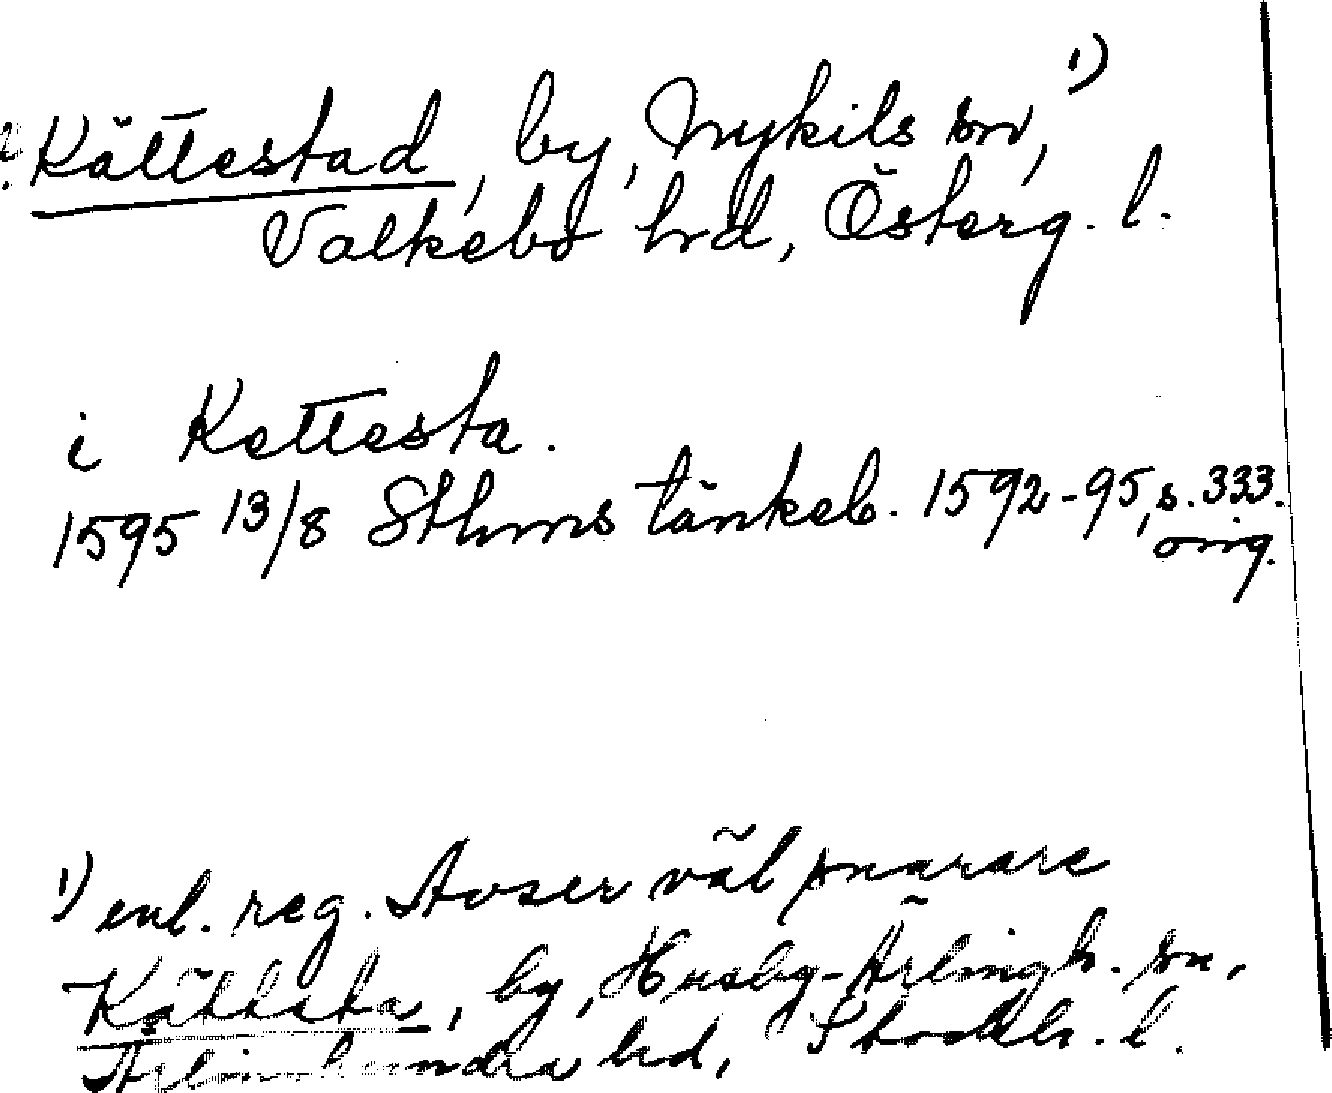 Kättestad, by, Nykils sn, 1)
Valkebo hrd, Österg. l.
i Kettesta.
1595 13/8 Sthms tänkeb. 1592-95, s. 333.
orig.
1) enl. reg. Avser väl snarare
Kättsta, by, Husby-Ärlingh. sn,
Ärlinghundra hrd, Stockh. l.